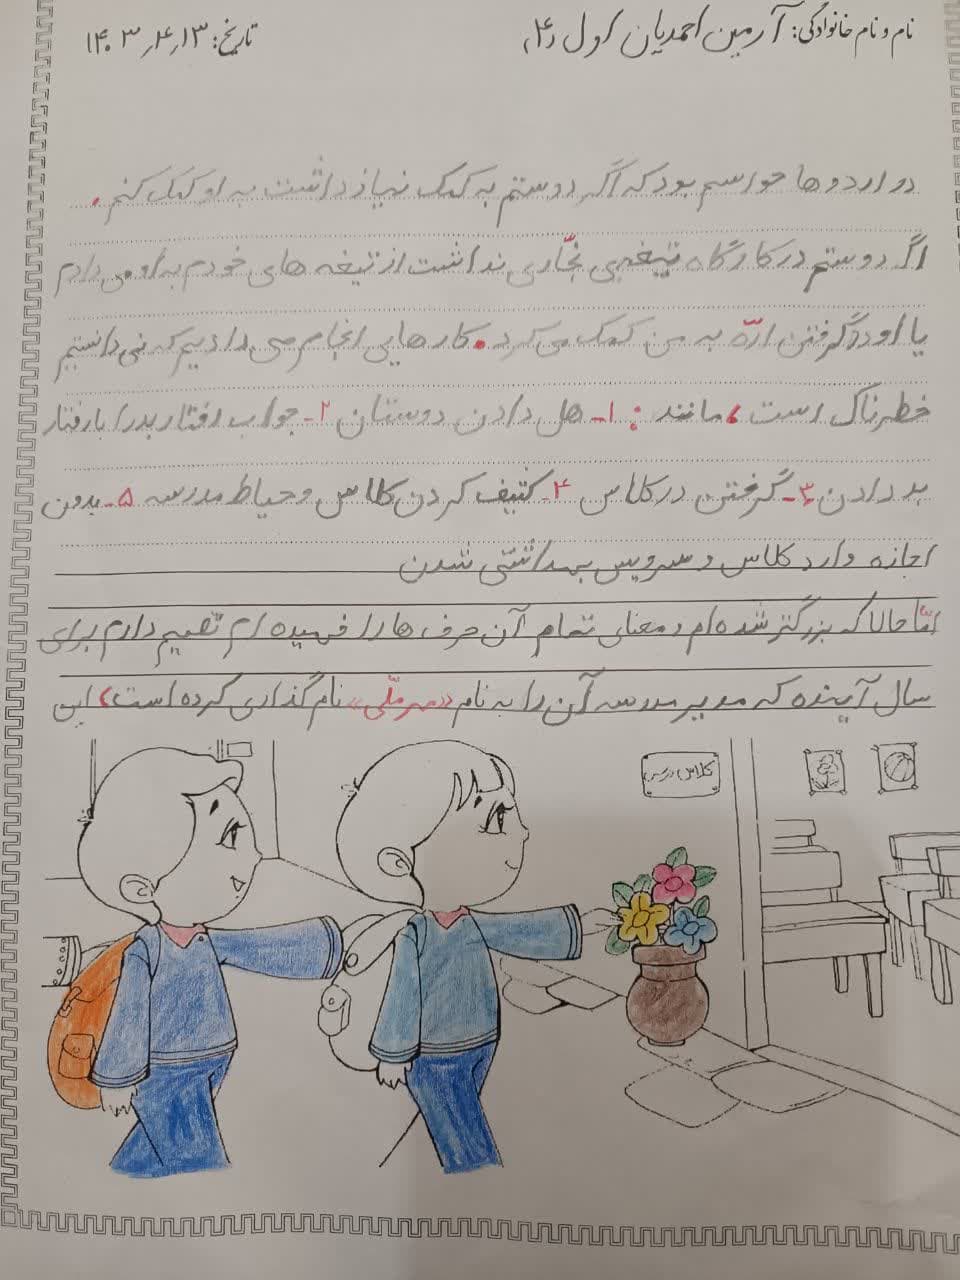 نام و نام خانوادگی: آرمین احمدیان اول (۴) تاریخ: ۱۴۰۳٫۴٫۱۳
در اردوها حواسم بود که اگر دوستم به کمک نیاز داشت به او کمک کنم.
اگر دوستم در کارگاه تیغه‌ی نجّاری نداشت از تیغه های خودم به او می دادم
یا او در گرفتن ارّه به من کمک می کرد. کارهایی انجام می دادیم که نمی دانستیم
خطرناک است، مانند: ۱- هل دادن دوستان ۲- جواب رفتار بد را با رفتار
بد دادن ۳- گرفتن در کلاس ۴- کثیف کردن کلاس و حیاط مدرسه ۵- بدون
اجازه وارد کلاس و سرویس بهداشتی شدن
امّا حالا که بزرگتر شده ام و معنای تمام آن حرف ها را فهمیده ام تصمیم دارم برای
سال آینده که مدیر مدرسه آن را به نام «مهر ملّی» نام گذاری کرده است، این
کلاس درس